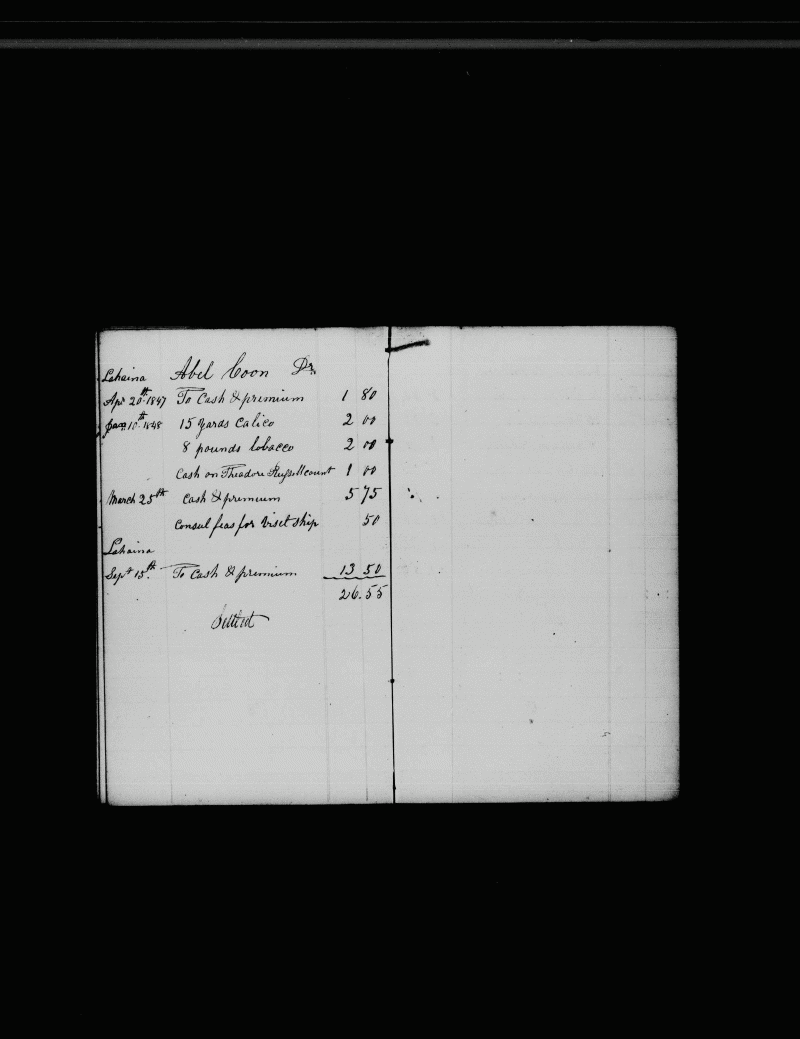 Lahaina Abel Coon Dr.
Apr 20th 1847 To Cash & premium 1 80
Jan 10th 1848 15 yards Calico 2 00
8 pounds tobacco 2 00
Cash on Theadore Russell count 1 00
March 25th Cash & premium 5 75
Consul feas for viset ship 50
Lahaina
Sept 15th To Cash & premium 13 50
26.55